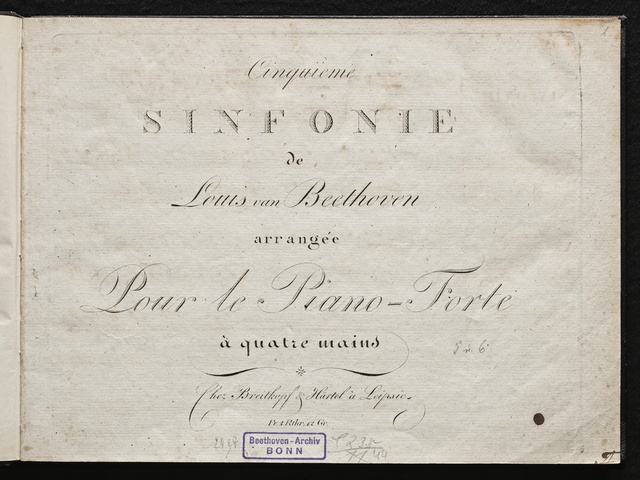 Cinquième
SINFONIE
de
Louis van Beethoven
arrangée
Pour le Piano-Forte
à quatre mains
Chez Breitkopf & Härtel à Leipsic.
Beethoven-Archiv
BONN